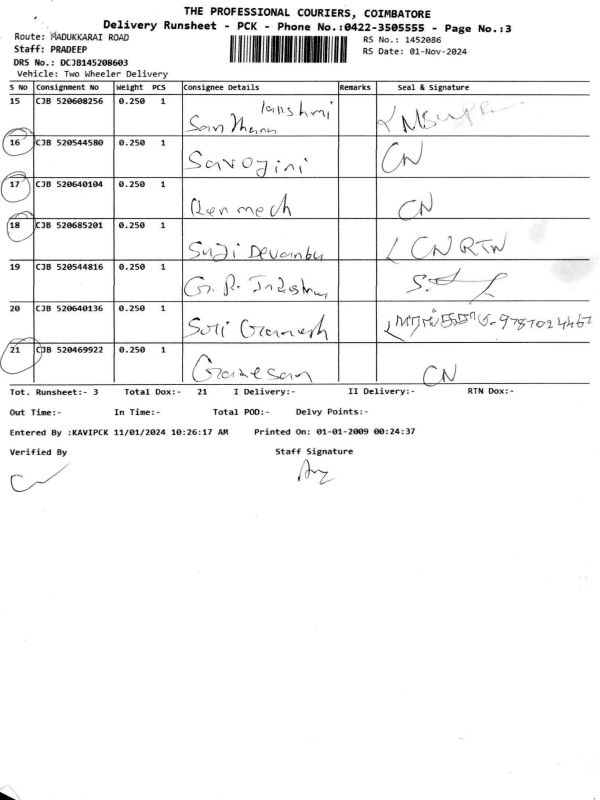 THE PROFESSIONAL COURIERS, COIMBATORE
Delivery Runsheet - PCK - Phone No.:0422-3505555 - Page No.:3
Route: MADUKKARAI ROAD RS No.: 1452086
Staff: PRADEEP RS Date: 01-Nov-2024
DRS No.: DCJB145208603
Vehicle: Two Wheeler Delivery
S No Consignment No Weight PCS Consignee Details Remarks Seal & Signature
15 CJB 520608256 0.250 1
16 CJB 520544580 0.250 1 Sarojini CN
17 CJB 520640104 0.250 1 CN
18 CJB 520685201 0.250 1 CN RTN
19 CJB 520544816 0.250 1 G. R.
20 CJB 520640136 0.250 1 9787024467
21 CJB 520469922 0.250 1 Ganesan CN
Tot. Runsheet:- 3 Total Dox:- 21 I Delivery:- II Delivery:- RTN Dox:-
Out Time:- In Time:- Total POD:- Delvy Points:-
Entered By :KAVIPCK 11/01/2024 10:26:17 AM Printed On: 01-01-2009 00:24:37
Verified By Staff Signature